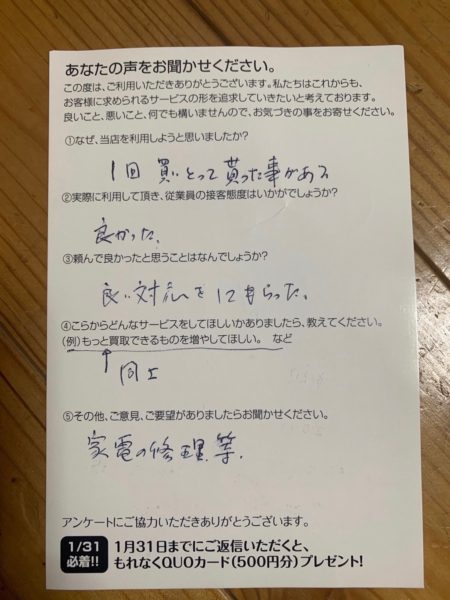 あなたの声をお聞かせください。
この度は、ご利用いただきありがとうございます。私たちはこれからも、
お客様に求められるサービスの形を追求していきたいと考えております。
良いこと、悪いこと、何でも構いませんので、お気づきの事をお寄せください。
①なぜ、当店を利用しようと思いましたか？
1回 買いとって貰った事がある
②実際に利用して頂き、従業員の接客態度はいかがでしょうか？
良かった。
③頼んで良かったと思うことはなんでしょうか？
良い対応をしてもらった。
④こらからどんなサービスをしてほしいかありましたら、教えてください。
(例)もっと買取できるものを増やしてほしい。 など
同上
⑤その他、ご意見、ご要望がありましたらお聞かせください。
家電の修理等.
アンケートにご協力いただきありがとうございます。
1/31
必着!!
1月31日までにご返信いただくと、
もれなくQUOカード(500円分)プレゼント!